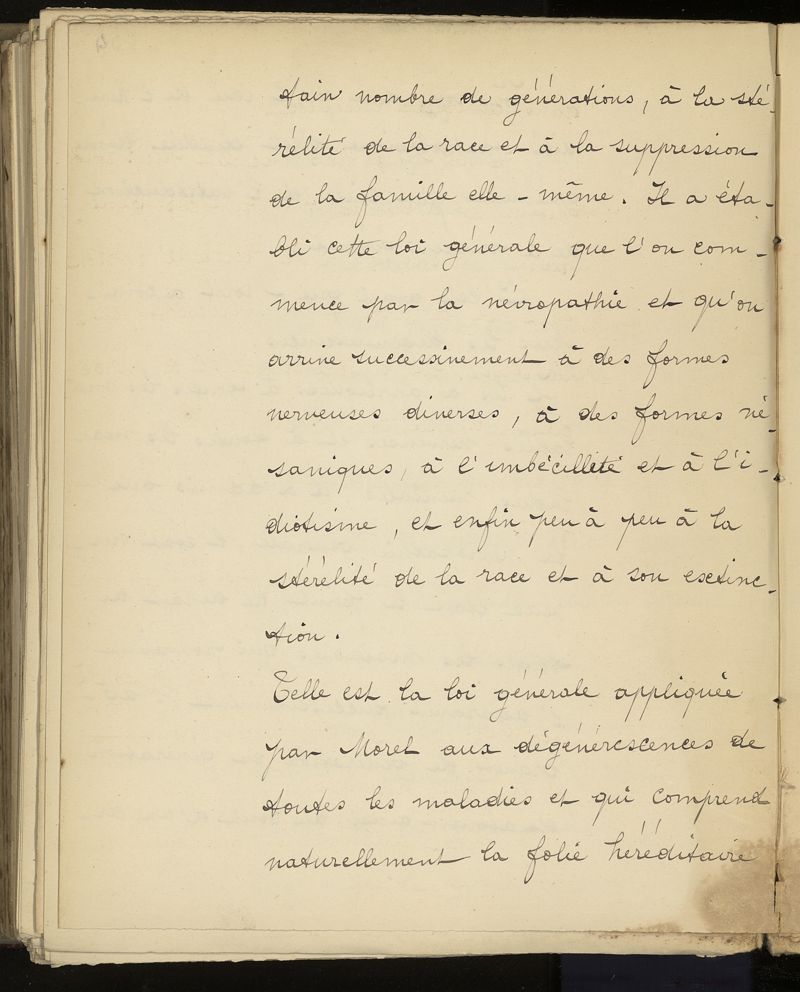 tain nombre de générations, à la sté-
rélité de la race et à la suppression
de la famille elle-même. Il a éta-
bli cette loi générale que l'on com-
mence par la névropathie et qu'on
arrive successivement à des formes
nerveuses diverses, à des formes vé-
saniques, à l'imbécilleté et à l'i-
diotisme, et enfin peu à peu à la
stérélité de la race et à son exctinc-
tion.
Telle est la loi générale appliquée
par Morel aux dégénérescences de
toutes les maladies et qui comprend
naturellement la folie héréditaire